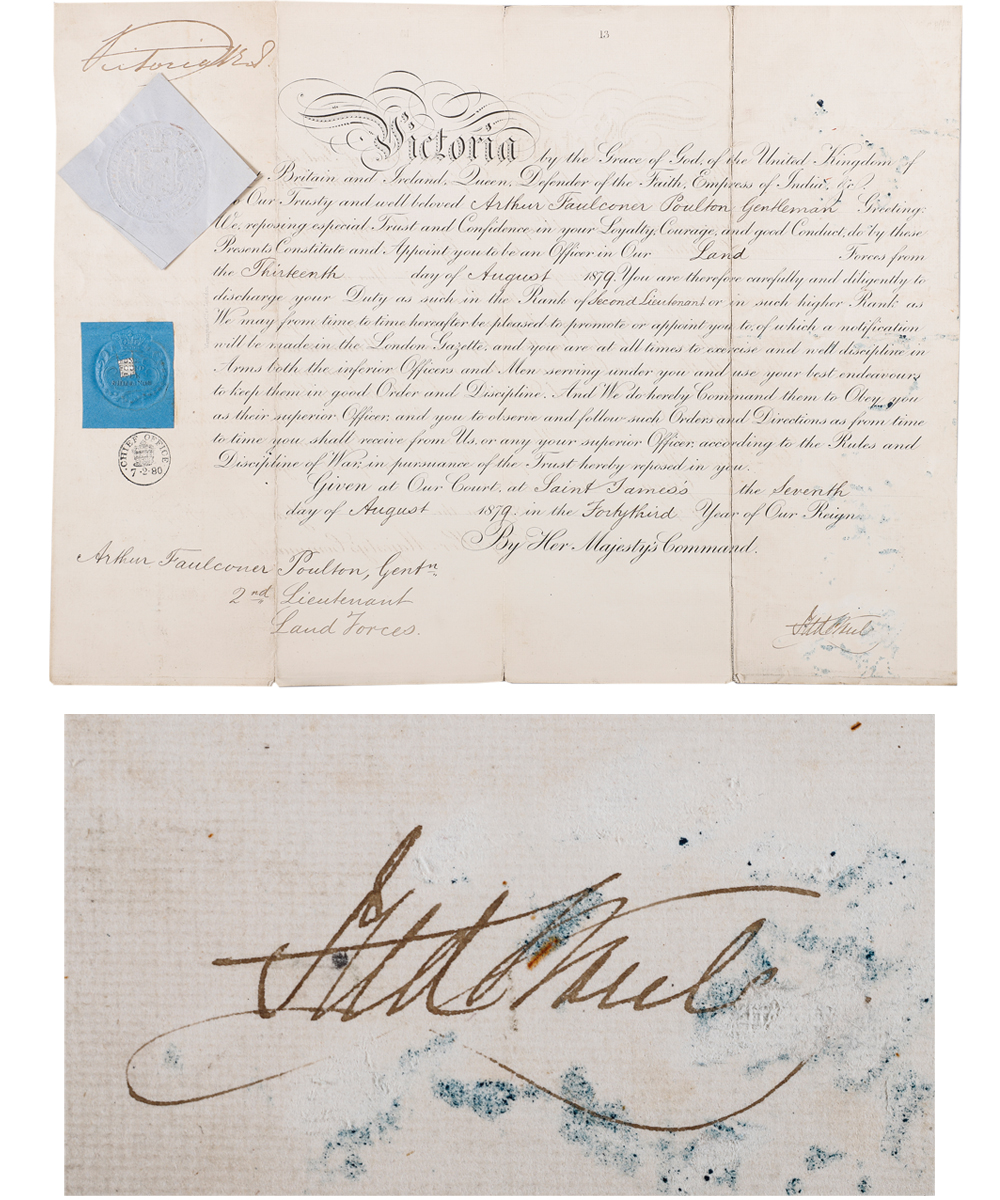 13
Victoria R&I
Victoria by the Grace of God, of the United Kingdom of
Britain and Ireland, Queen, Defender of the Faith, Empress of India, &c.
Our Trusty and well beloved Arthur Faulconer Poulton Gentleman Greeting:
We, reposing especial Trust and Confidence in your Loyalty, Courage, and good Conduct, do by these
Presents Constitute and Appoint you to be an Officer in Our Land Forces from
the Thirteenth day of August 1879. You are therefore carefully and diligently to
discharge your Duty as such in the Rank of Second Lieutenant or in such higher Rank as
We may from time to time hereafter be pleased to promote or appoint you to, of which a notification
will be made in the London Gazette, and you are at all times to exercise and well discipline in
Arms both the inferior Officers and Men serving under you and use your best endeavours
to keep them in good Order and Discipline. And We do hereby Command them to Obey you
as their superior Officer, and you to observe and follow such Orders and Directions as from time
to time you shall receive from Us, or any your superior Officer, according to the Rules and
Discipline of War, in pursuance of the Trust hereby reposed in you.
CHIEF OFFICE
7·2·80
Given at Our Court, at Saint James's the Seventh
day of August 1879, in the Fortythird Year of Our Reign.
By Her Majesty's Command.
Arthur Faulconer Poulton, Gentn.
2nd Lieutenant
Land Forces.